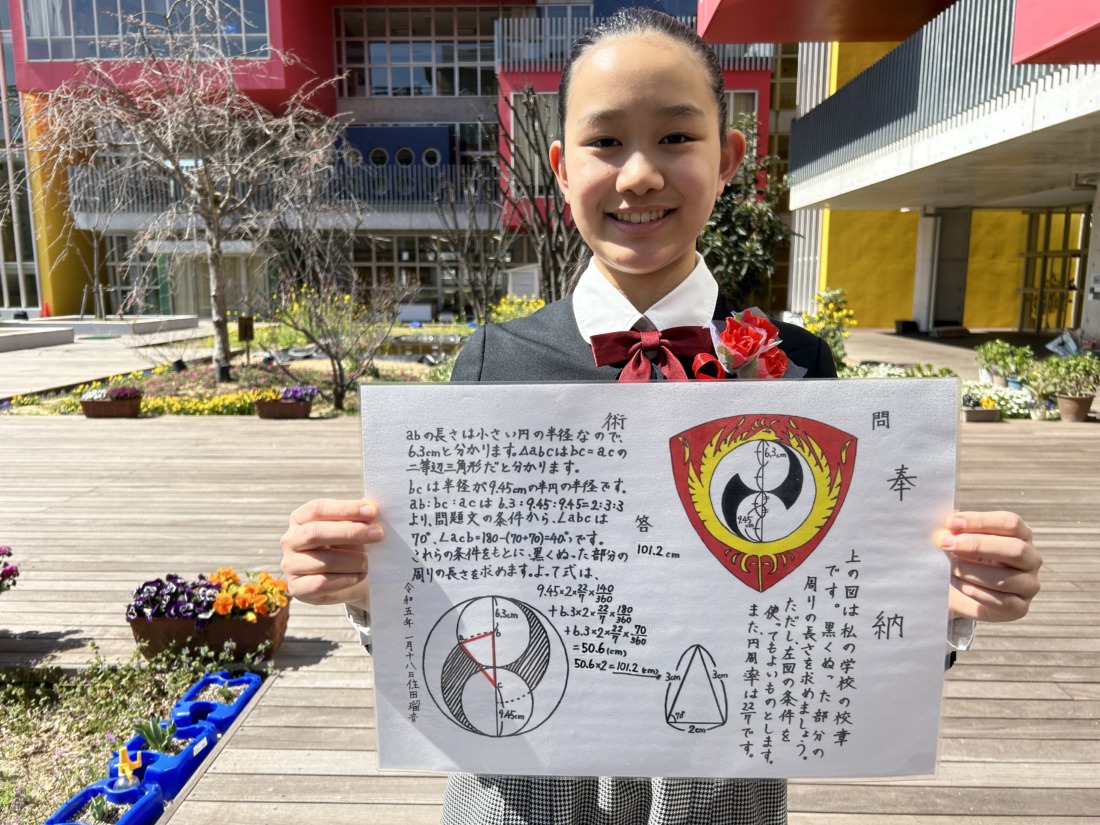 奉納
問
上の図は私の学校の校章
です。黒くぬった部分の
周りの長さを求めましょう。
ただし、左図の条件を
使ってもよいものとします。
また、円周率は22/7です。
6.3cm
9.45cm
3cm
3cm
70°
2cm
答
101.2cm
術
abの長さは小さい円の半径なので、
6.3cmと分かります。△abcはbc=acの
二等辺三角形だと分かります。
bcは半径が9.45cmの半円の半径です。
ab:bc:acは6.3:9.45:9.45=2:3:3
より、問題文の条件から、∠abcは
70°、∠acb=180-(70+70)=40°です。
これらの条件をもとに、黒くぬった部分の
周りの長さを求めます。よって式は、
9.45×2×22/7×140/360
+6.3×2×22/7×180/360
+6.3×2×22/7×70/360
=50.6(cm)
50.6×2=101.2(cm)
6.3cm
a
b
c
9.45cm
令和五年一月十八日住田瑠音